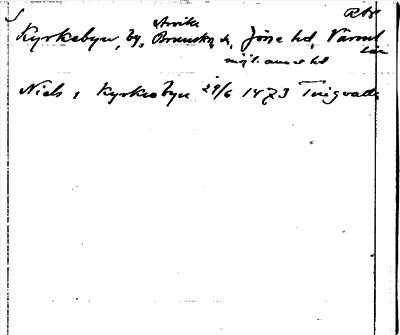 Arvika RAP
Kyrkebyn, by, Brunsko s, Jösse hd, Värml
län
möjl. annat hd
Niels i Kyrkiobyn 29/6 1473